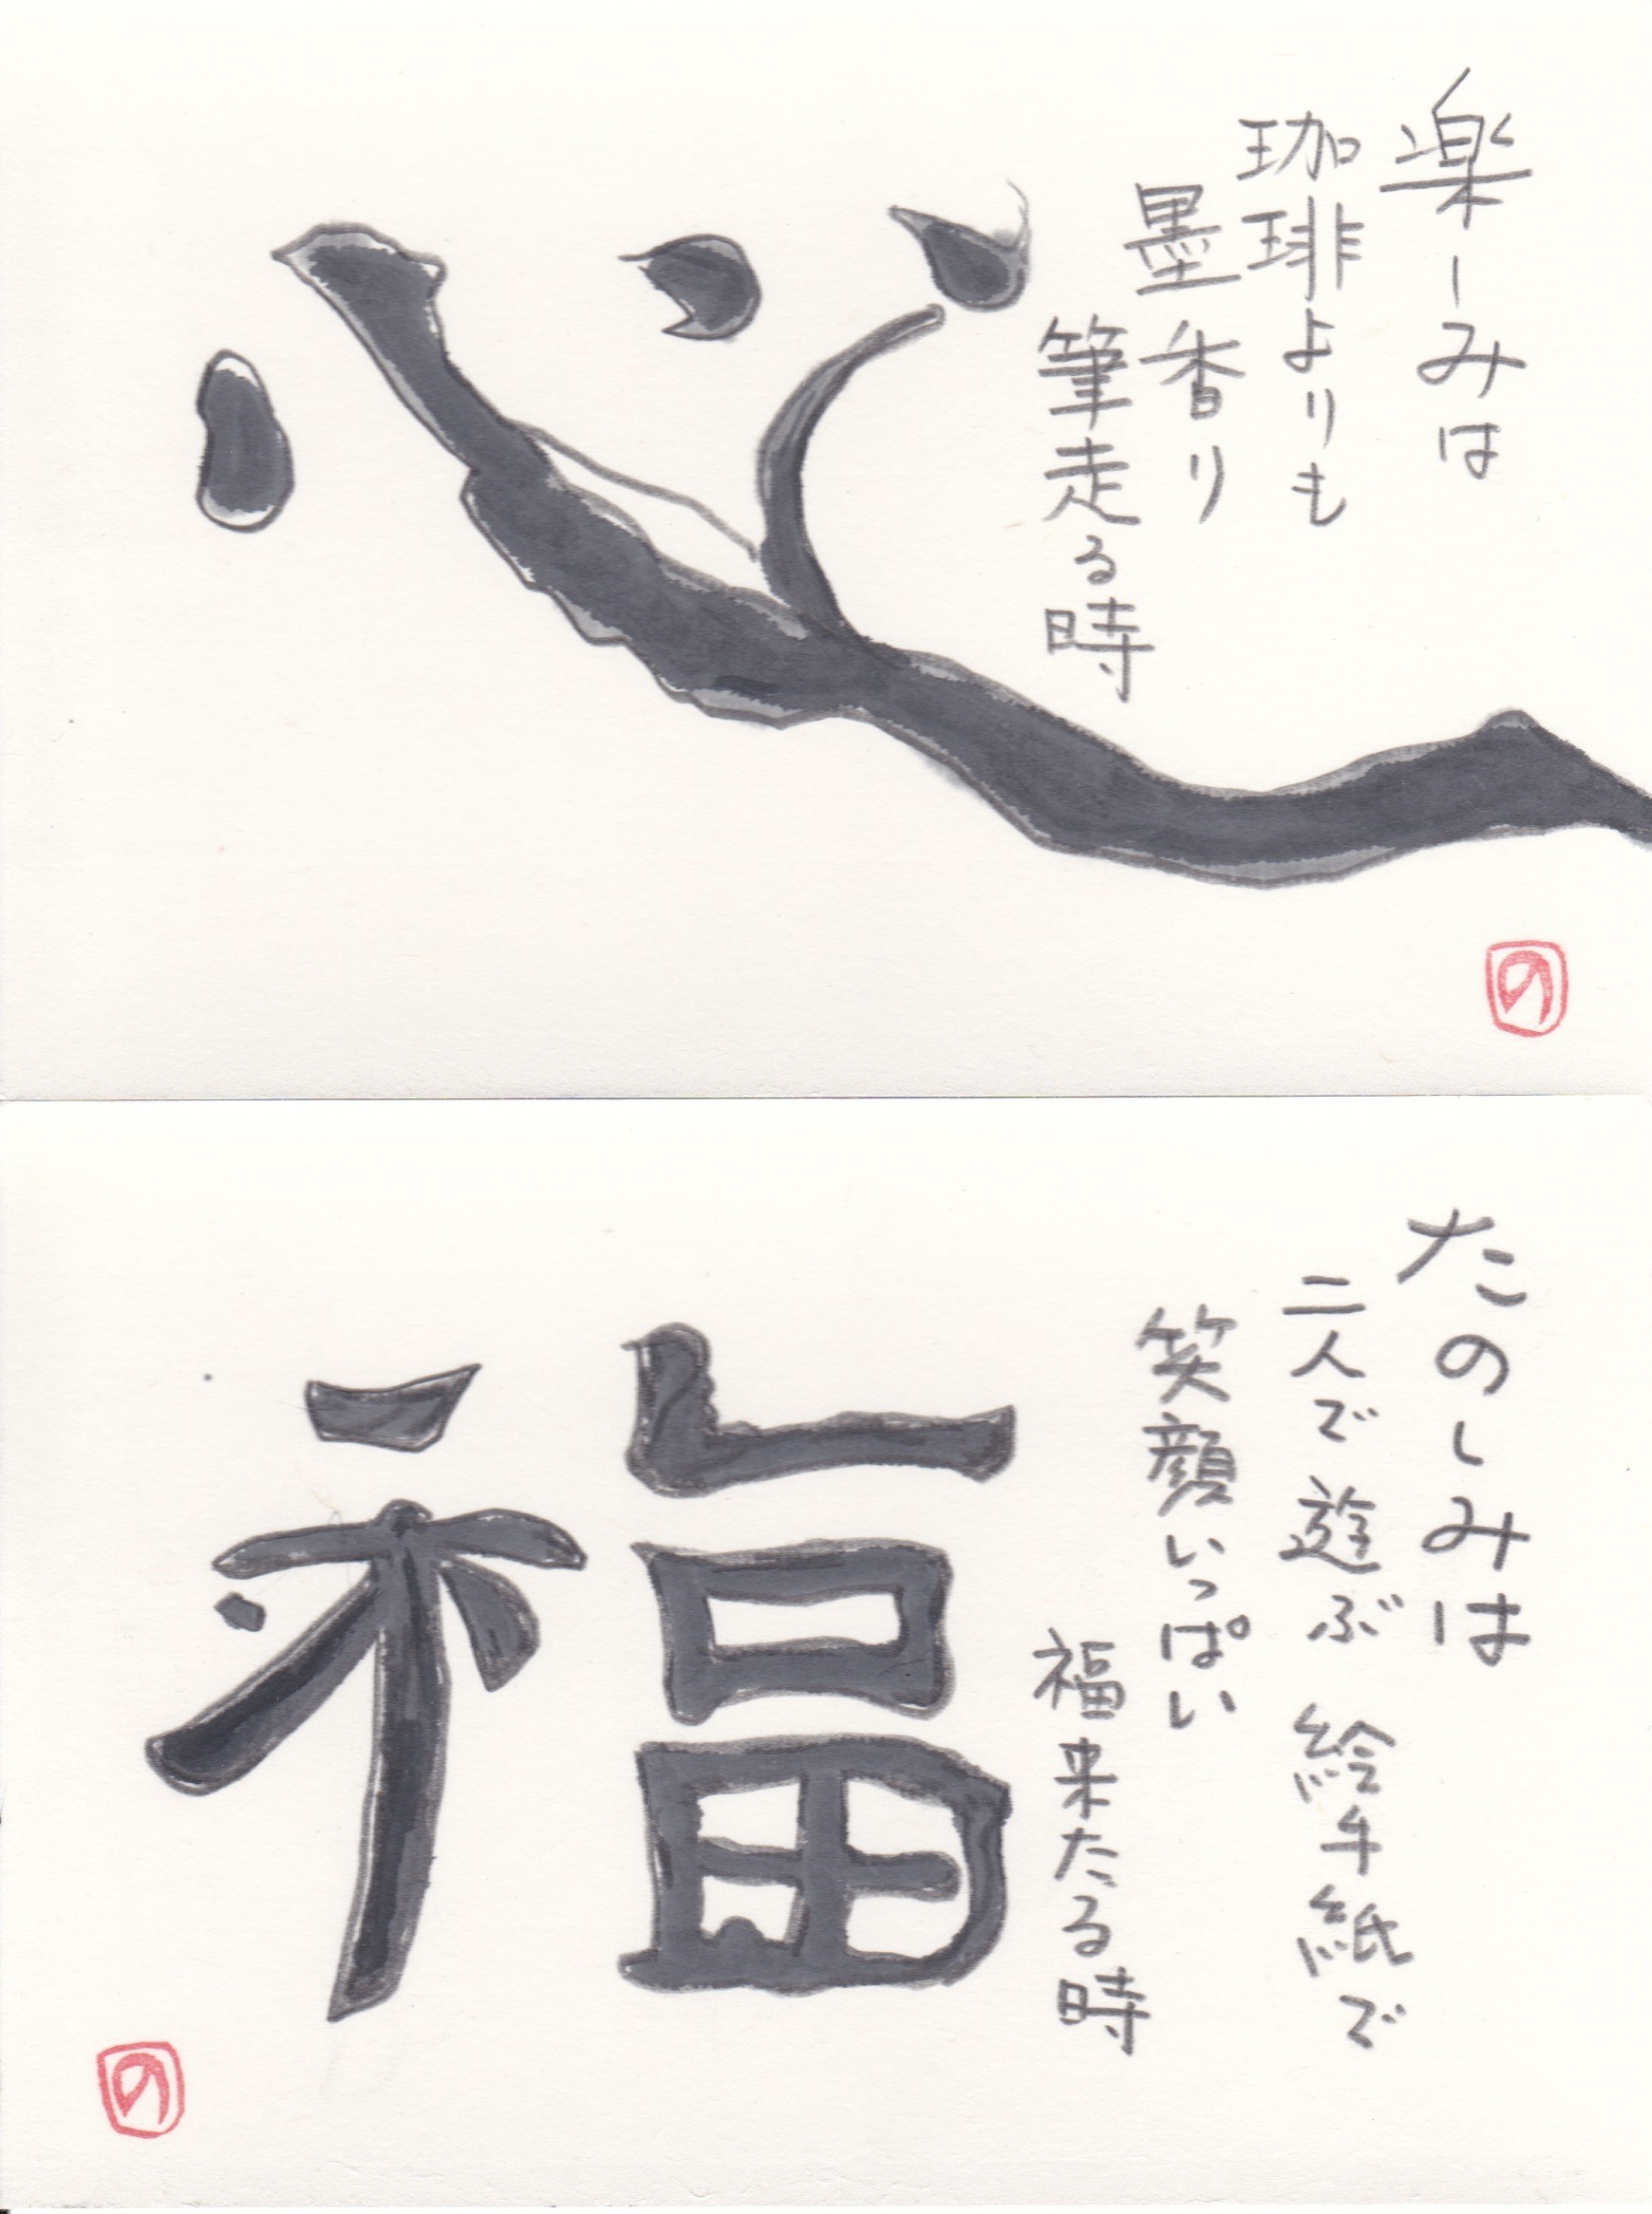 楽しみは
珈琲よりも
墨香り
筆走る時
の
たのしみは
二人で遊ぶ 絵手紙で
笑顔いっぱい
福来たる時
福
の